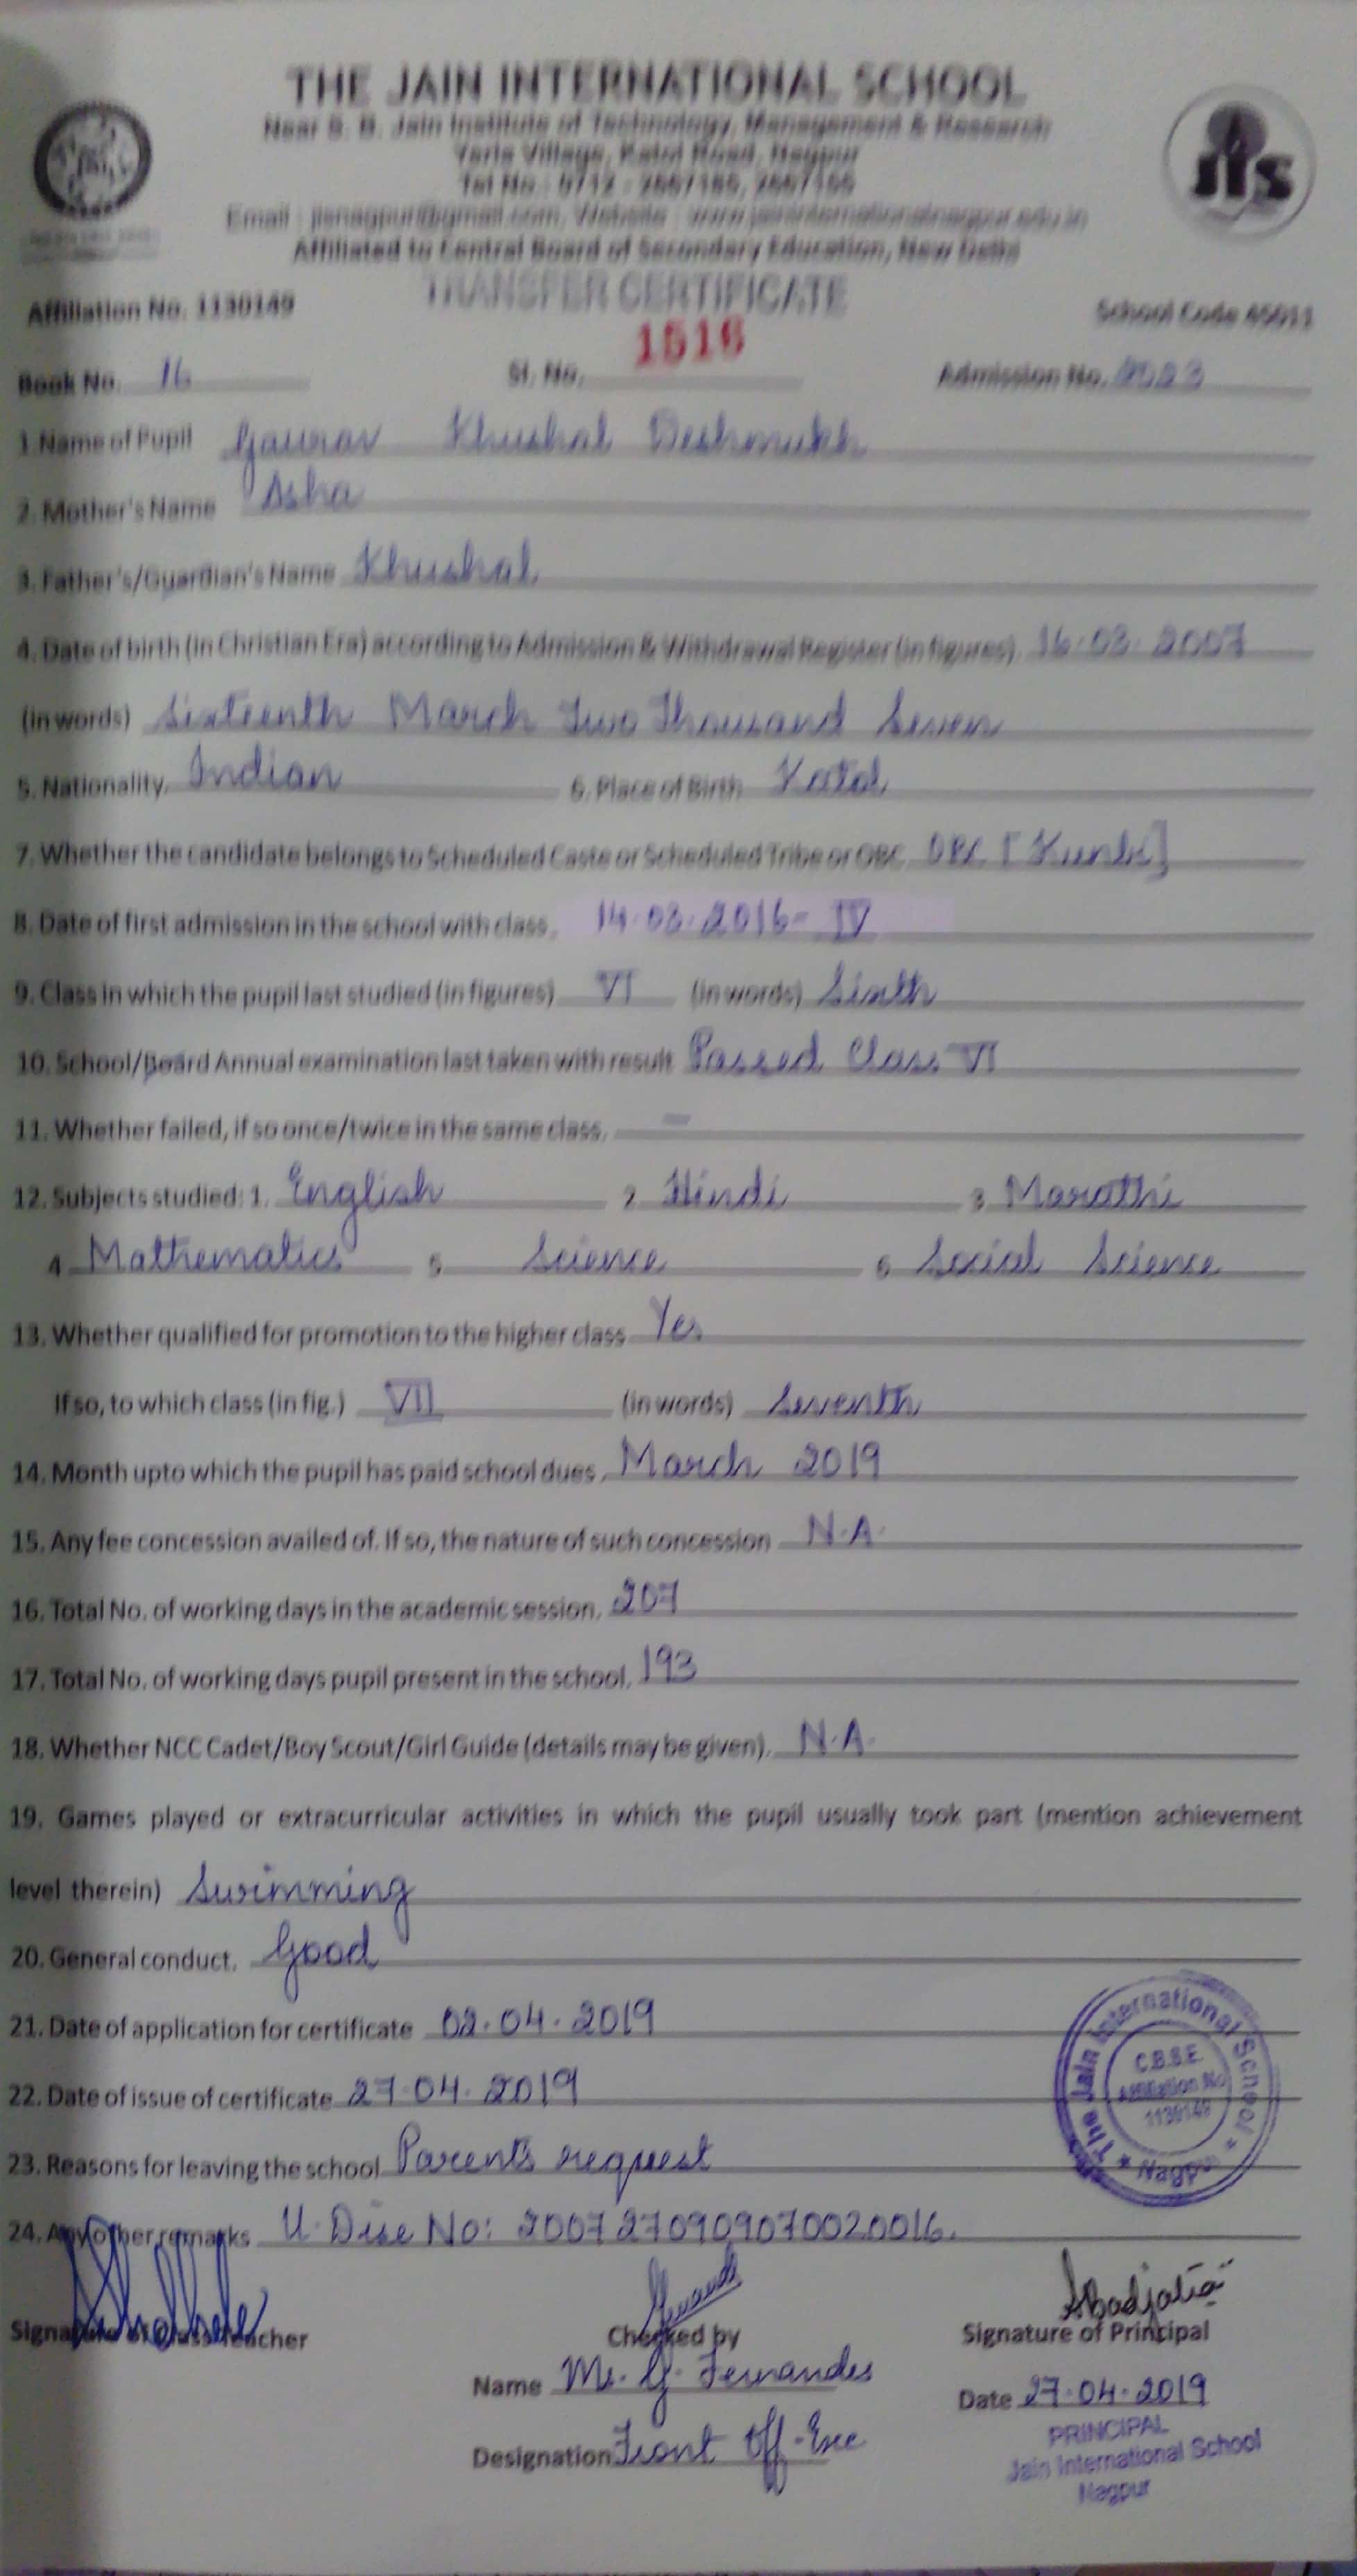 THE JAIN INTERNATIONAL SCHOOL
Near S. B. Jain Institute of Technology, Management & Research
Yerla Village, Katol Road, Nagpur
Tel No.
Affiliated to Central Board of Secondary Education, New Delhi
TRANSFER CERTIFICATE
Affiliation No. 1130149 School Code 45011
Book No. 16 Sl. No. 1516 Admission No.
1. Name of Pupil Gaurav Khushal Deshmukh
2. Mother's Name Asha
3. Father's/Guardian's Name Khushal
4. Date of birth (in Christian Era) according to Admission & Withdrawal Register (in figures) 16.03.2007
(in words) Sixteenth March Two Thousand Seven
5. Nationality Indian 6. Place of Birth Katol
7. Whether the candidate belongs to Scheduled Caste or Scheduled Tribe or OBC OBC [Kunbi]
8. Date of first admission in the school with class. 14.03.2016 - IV
9. Class in which the pupil last studied (in figures) VI (in words) Sixth
10. School/Board Annual examination last taken with result Passed Class VI
11. Whether failed, if so once/twice in the same class. -
12. Subjects studied: 1. English 2. Hindi 3. Marathi
4. Mathematics 5. Science 6. Social Science
13. Whether qualified for promotion to the higher class Yes
If so, to which class (in fig.) VII (in words) Seventh
14. Month upto which the pupil has paid school dues. March 2019
15. Any fee concession availed of. If so, the nature of such concession N.A.
16. Total No. of working days in the academic session. 207
17. Total No. of working days pupil present in the school. 193
18. Whether NCC Cadet/Boy Scout/Girl Guide (details may be given). N.A.
19. Games played or extracurricular activities in which the pupil usually took part (mention achievement
level therein) Swimming
20. General conduct. Good
21. Date of application for certificate 02.04.2019
22. Date of issue of certificate 27.04.2019
23. Reasons for leaving the school Parent's request
24. Any other remarks U-Dise No: 2007270909070020016.
The Jain International School * Nagpur *
C.B.S.E.
Affiliation No.
1130149
Signature of Class Teacher Checked by Signature of Principal
Name Ms. G. Fernandes Date 27.04.2019
Designation Front Off-Exe PRINCIPAL
Jain International School
Nagpur